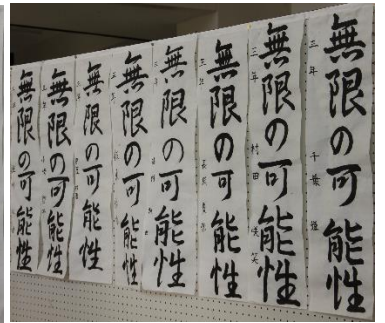 無限の可能性
三年 千葉
無限の可能性
三年 村田 咲笑
無限の可能性
三年
無限の可能性
三年
無限の可能性
無限の可能性
無限の可能性
無限の可能性